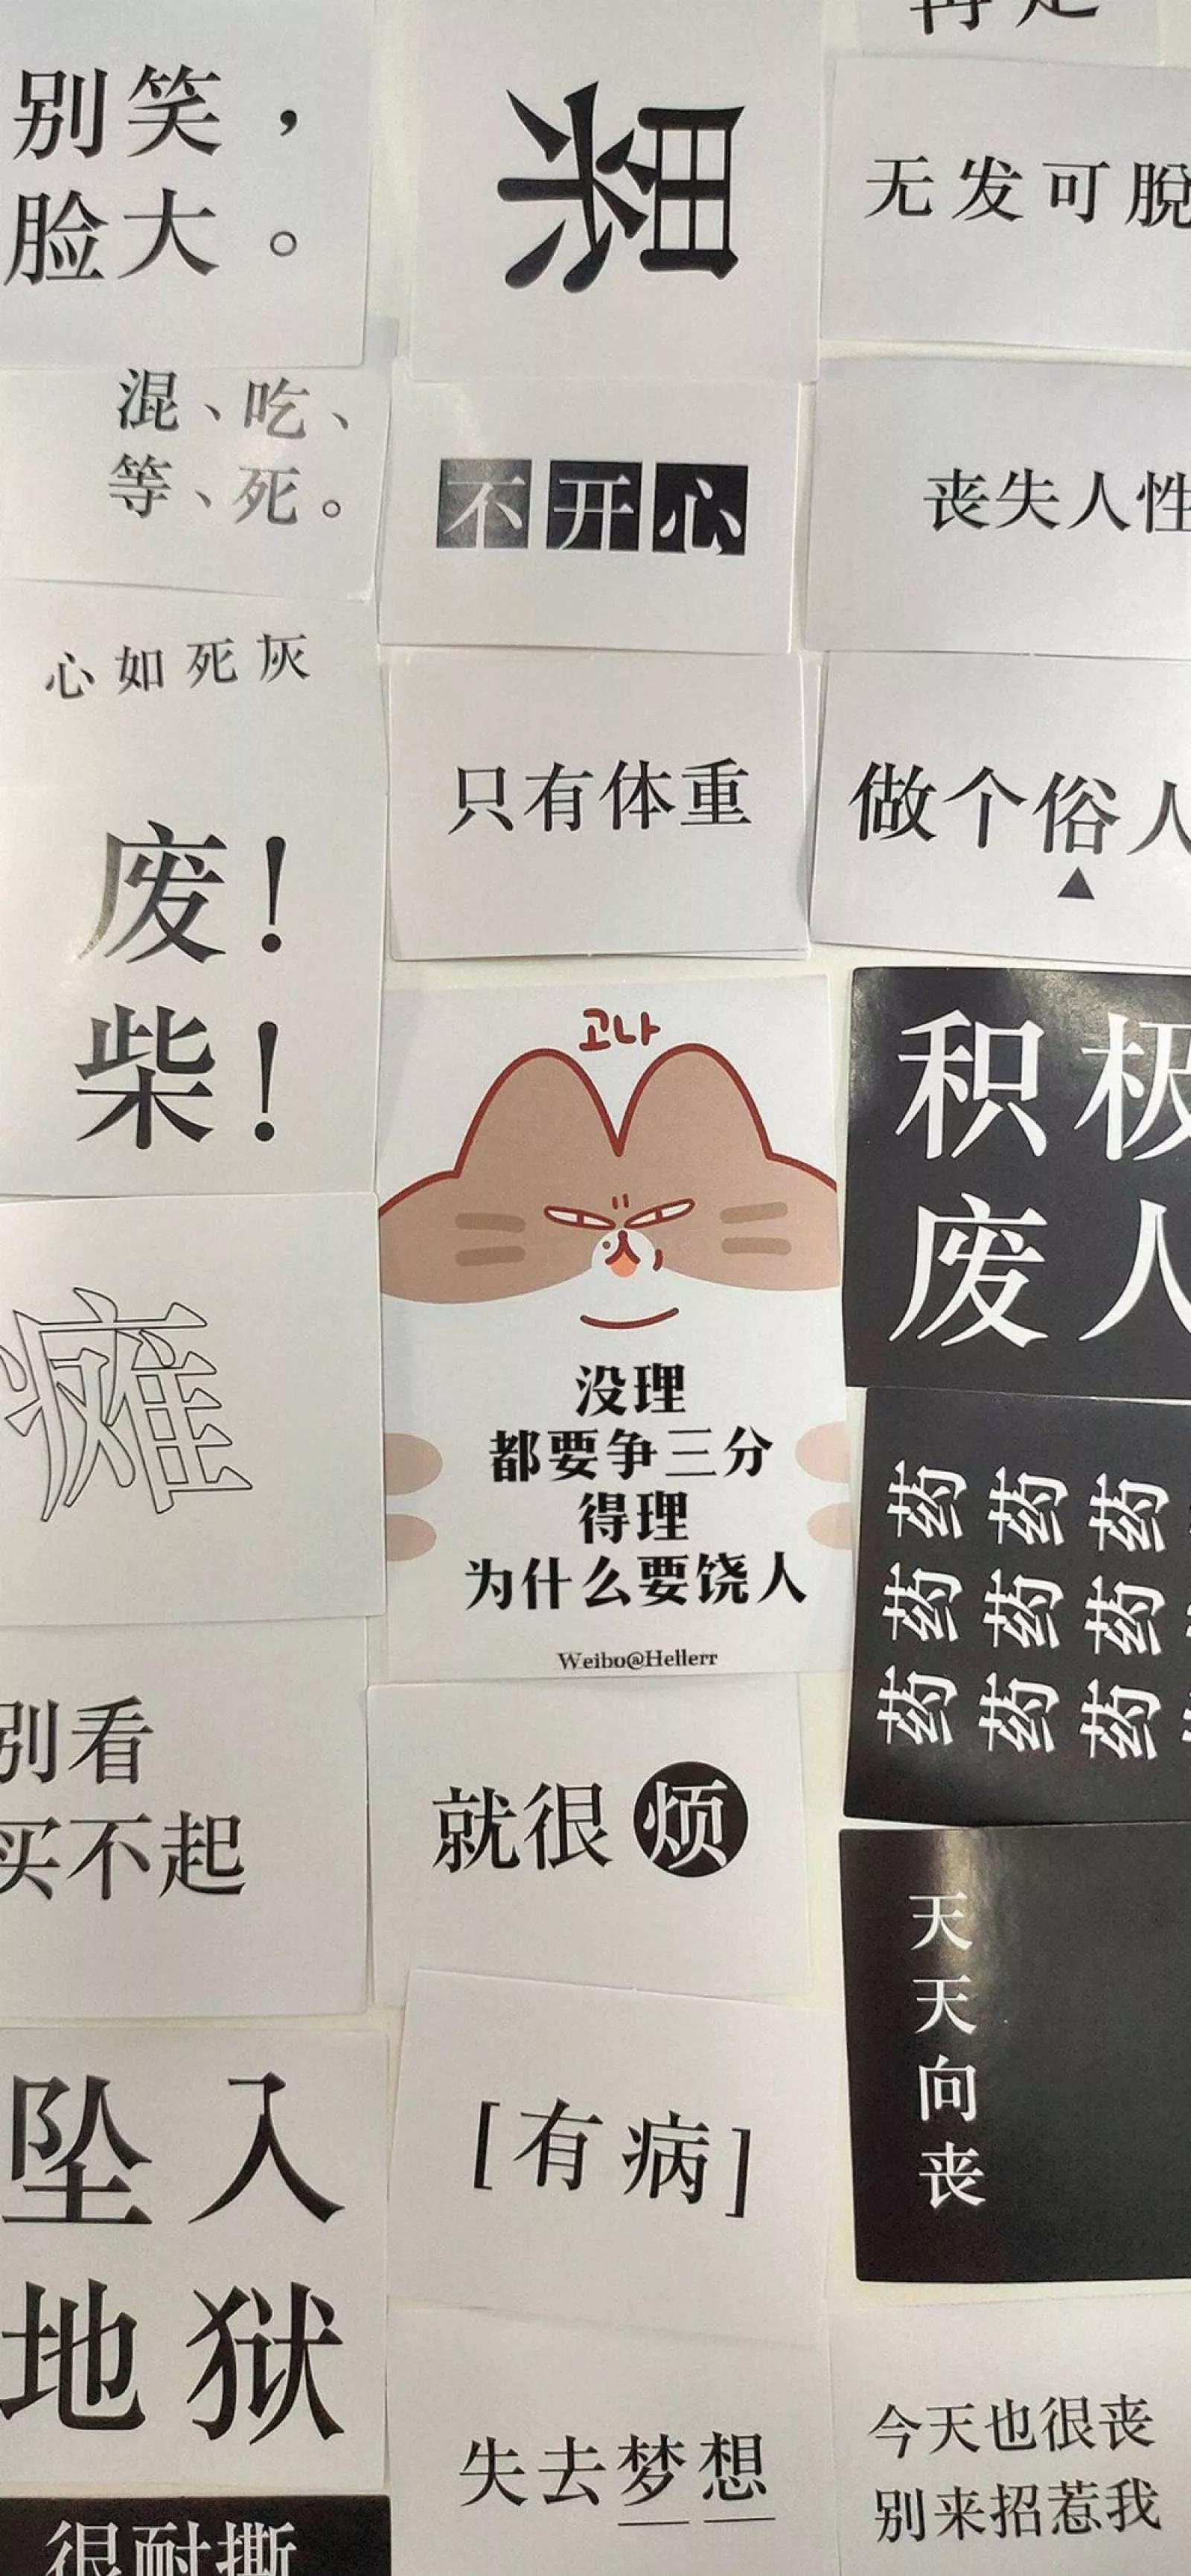 别笑，
脸大。
累
无发可脱
混、吃、
等、死。
不开心
丧失人性
心如死灰
只有体重
做个俗人
▲
废！
柴！
고나
没理
都要争三分
得理
为什么要饶人
Weibo@Hellerr
积极
废人
瘫
药药药
药药药
药药药
别看
买不起
就很烦
天
天
向
丧
坠入
地狱
[有病]
失去梦想
今天也很丧
别来招惹我
很耐撕